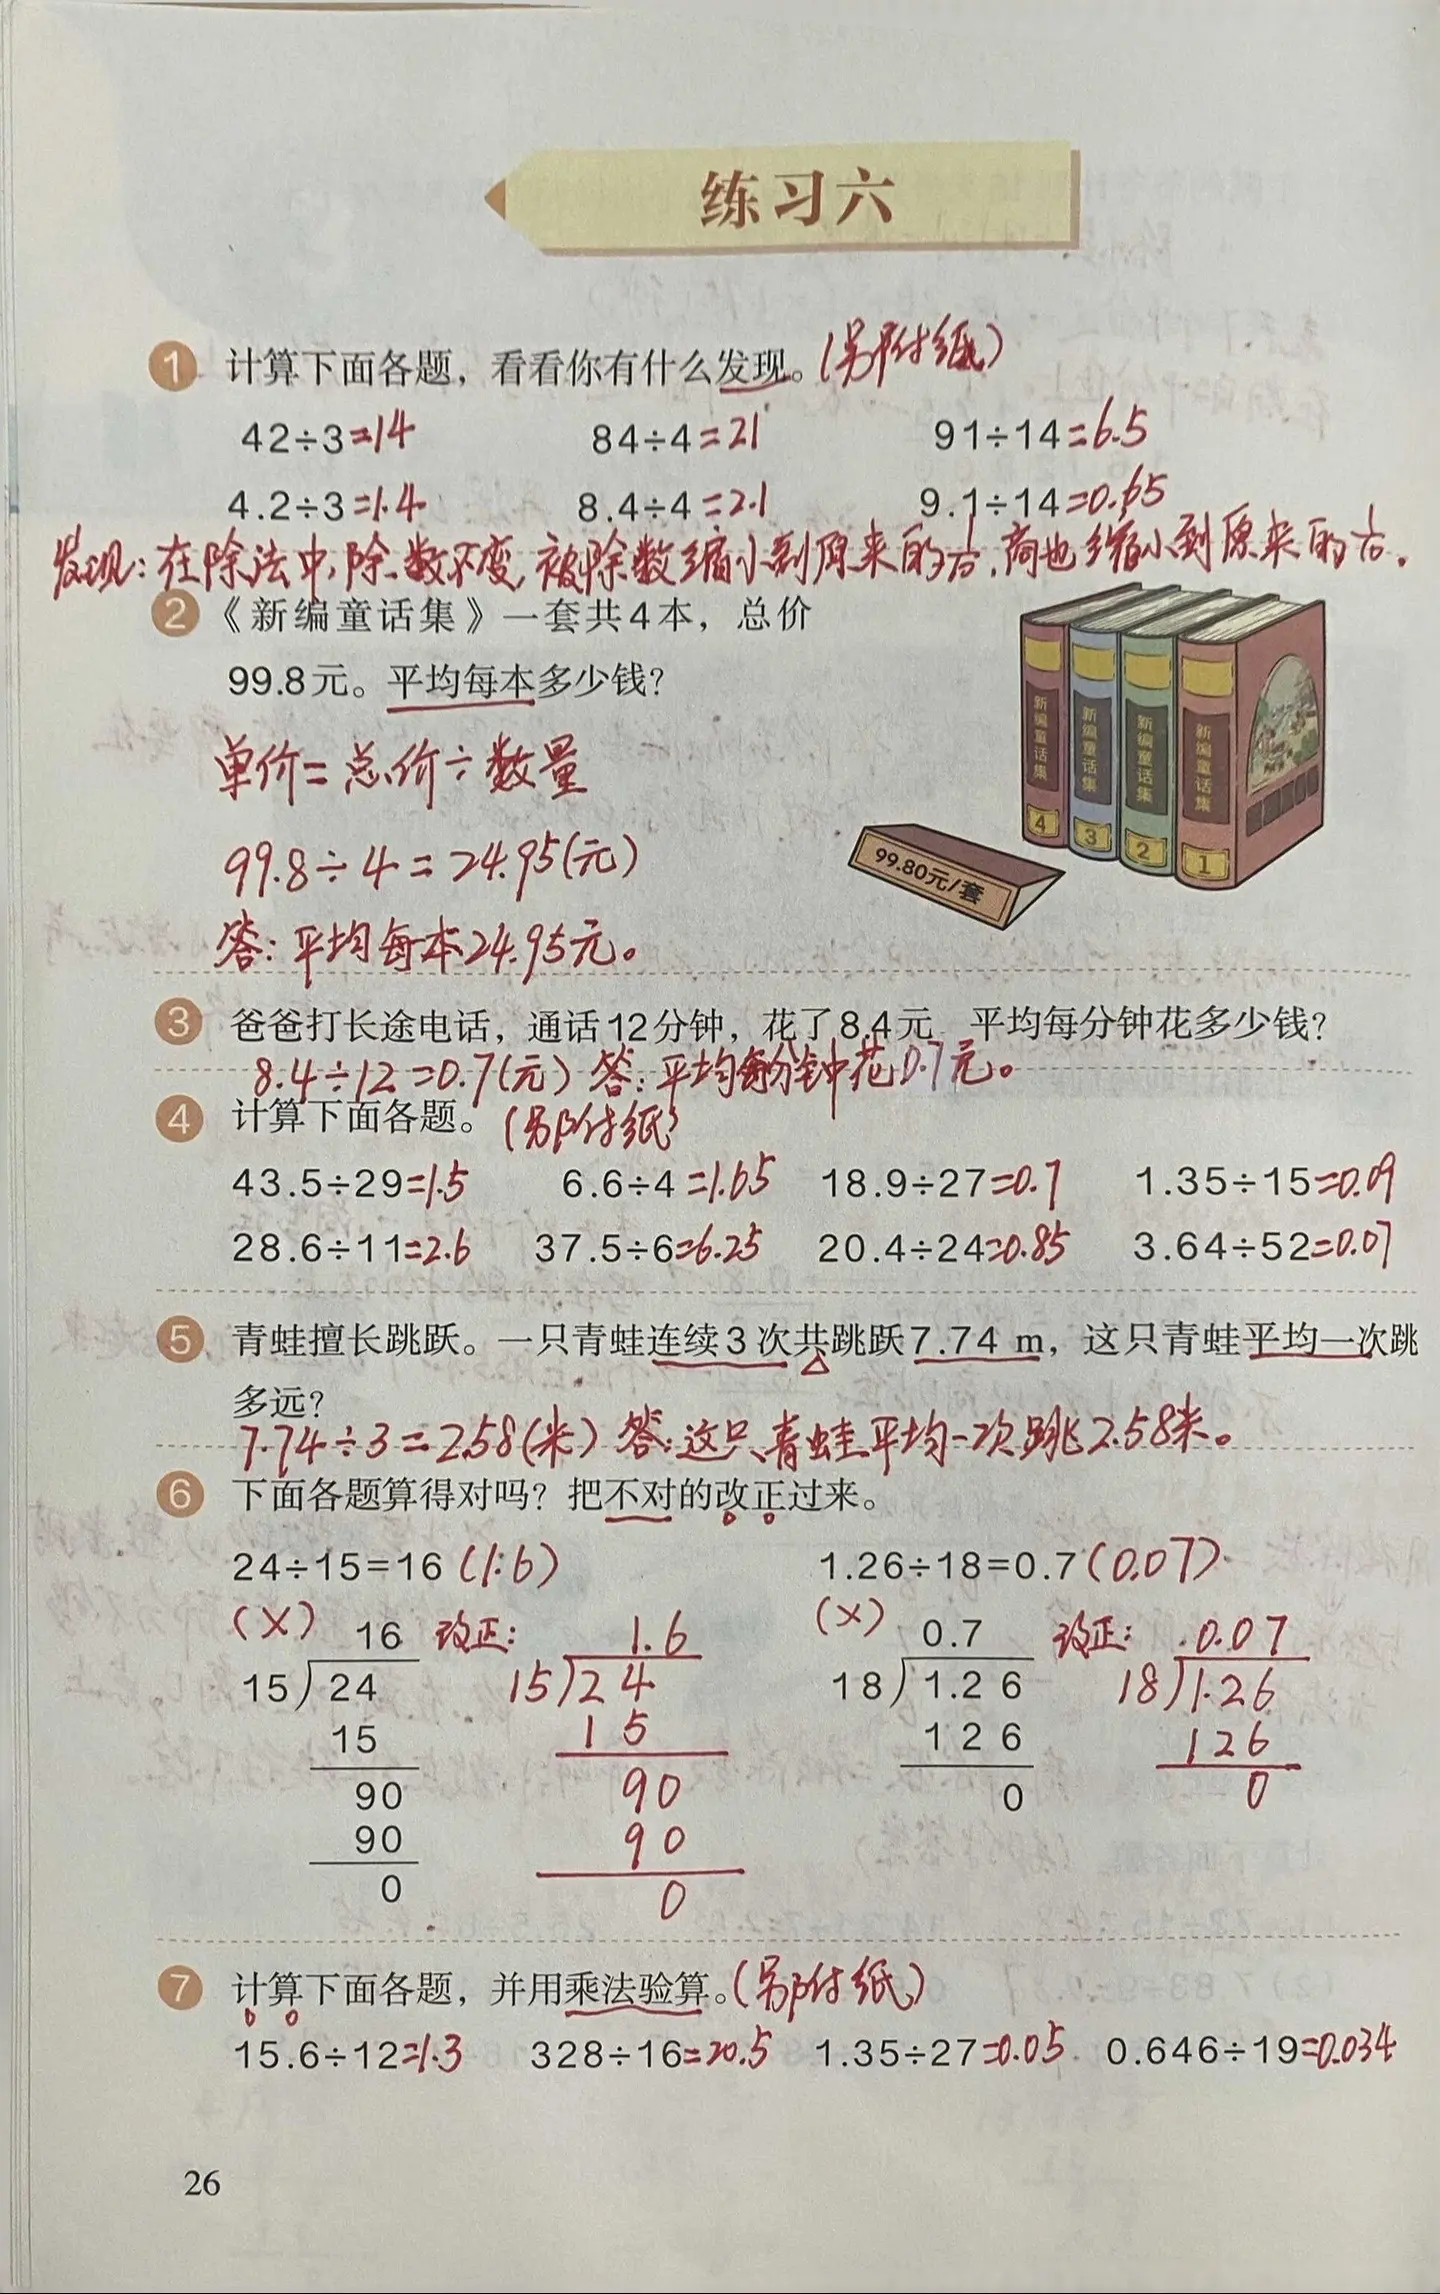 练习六
1 计算下面各题，看看你有什么发现。(另附纸)
42÷3=14 84÷4=21 91÷14=6.5
4.2÷3=1.4 8.4÷4=2.1 9.1÷14=0.65
发现：在除法中，除数不变，被除数缩小到原来的1/10，商也缩小到原来的1/10。
2 《新编童话集》一套共4本，总价
99.8元。平均每本多少钱？
单价=总价÷数量
99.8÷4=24.95(元)
答：平均每本24.95元。
新编童话集 4
新编童话集 3
新编童话集 2
新编童话集 1
99.80元/套
3 爸爸打长途电话，通话12分钟，花了8.4元 平均每分钟花多少钱？
8.4÷12=0.7(元) 答：平均每分钟花0.7元。
4 计算下面各题。(另附纸)
43.5÷29=1.5 6.6÷4=1.65 18.9÷27=0.7 1.35÷15=0.09
28.6÷11=2.6 37.5÷6=6.25 20.4÷24=0.85 3.64÷52=0.07
5 青蛙擅长跳跃。一只青蛙连续3次共跳跃7.74 m，这只青蛙平均一次跳
多远？
7.74÷3=2.58(米) 答：这只青蛙平均一次跳2.58米。
6 下面各题算得对吗？把不对的改正过来。
24÷15=16 (1.6) 1.26÷18=0.7 (0.07)
(×) 16 改正： 1.6 (×) 0.7 改正： 0.07
15)24 15)24 18)1.26 18)1.26
15 15 126 126
90 90 0 0
90 90
0 0
7 计算下面各题，并用乘法验算。(另附纸)
15.6÷12=1.3 328÷16=20.5 1.35÷27=0.05 0.646÷19=0.034
26